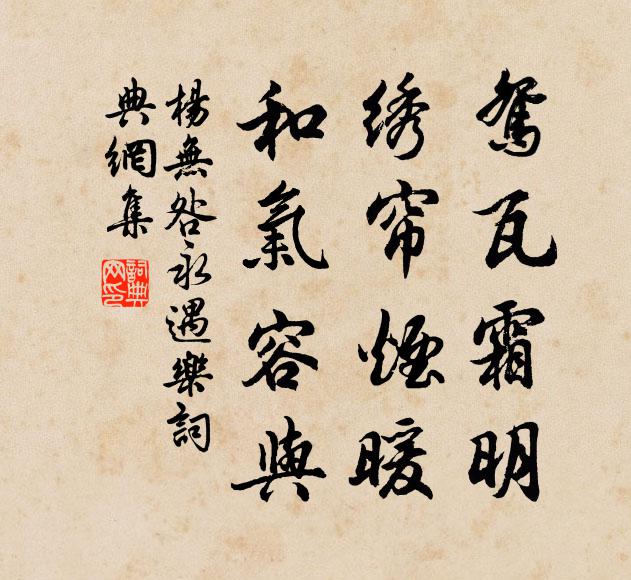 鴛瓦霜明
绣帘煙暖
和氣容與
楊無咎永遇樂詞
典網集
詞典网印